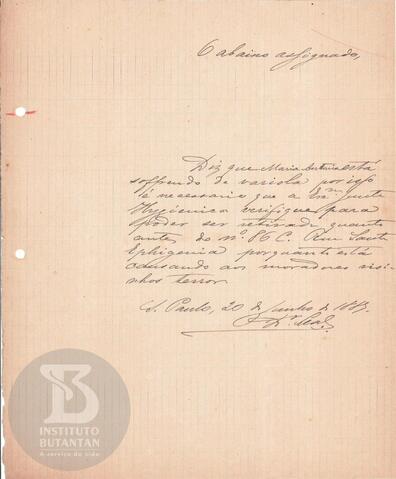 O abaixo assignado,
Diz que Maria Antonia está
soffrendo de variola por isso
é necessario que a Exm. Junta
Hygienica verifique para
poder ser retirada quanto
antes do nº 76 C. Rua Santa
Ephigenia porquanto está
causando aos moradores visi-
nhos terror
S. Paulo, 20 de Junho de
Dr. Leal
INSTITUTO
BUTANTAN
A serviço da vida